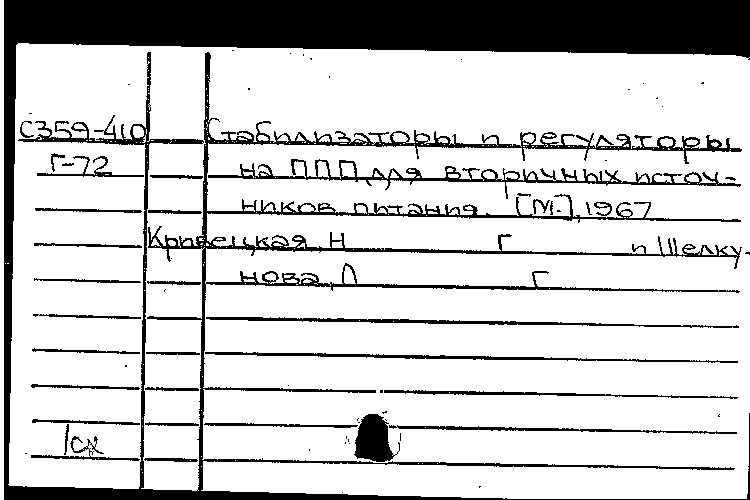 С359-410 Стабилизаторы и регуляторы
Г-72 на ППП для вторичных источ-
ников питания. [М.], 1967
Кривецкая, Н Г и Шелку-
нова, Л Г
1сх